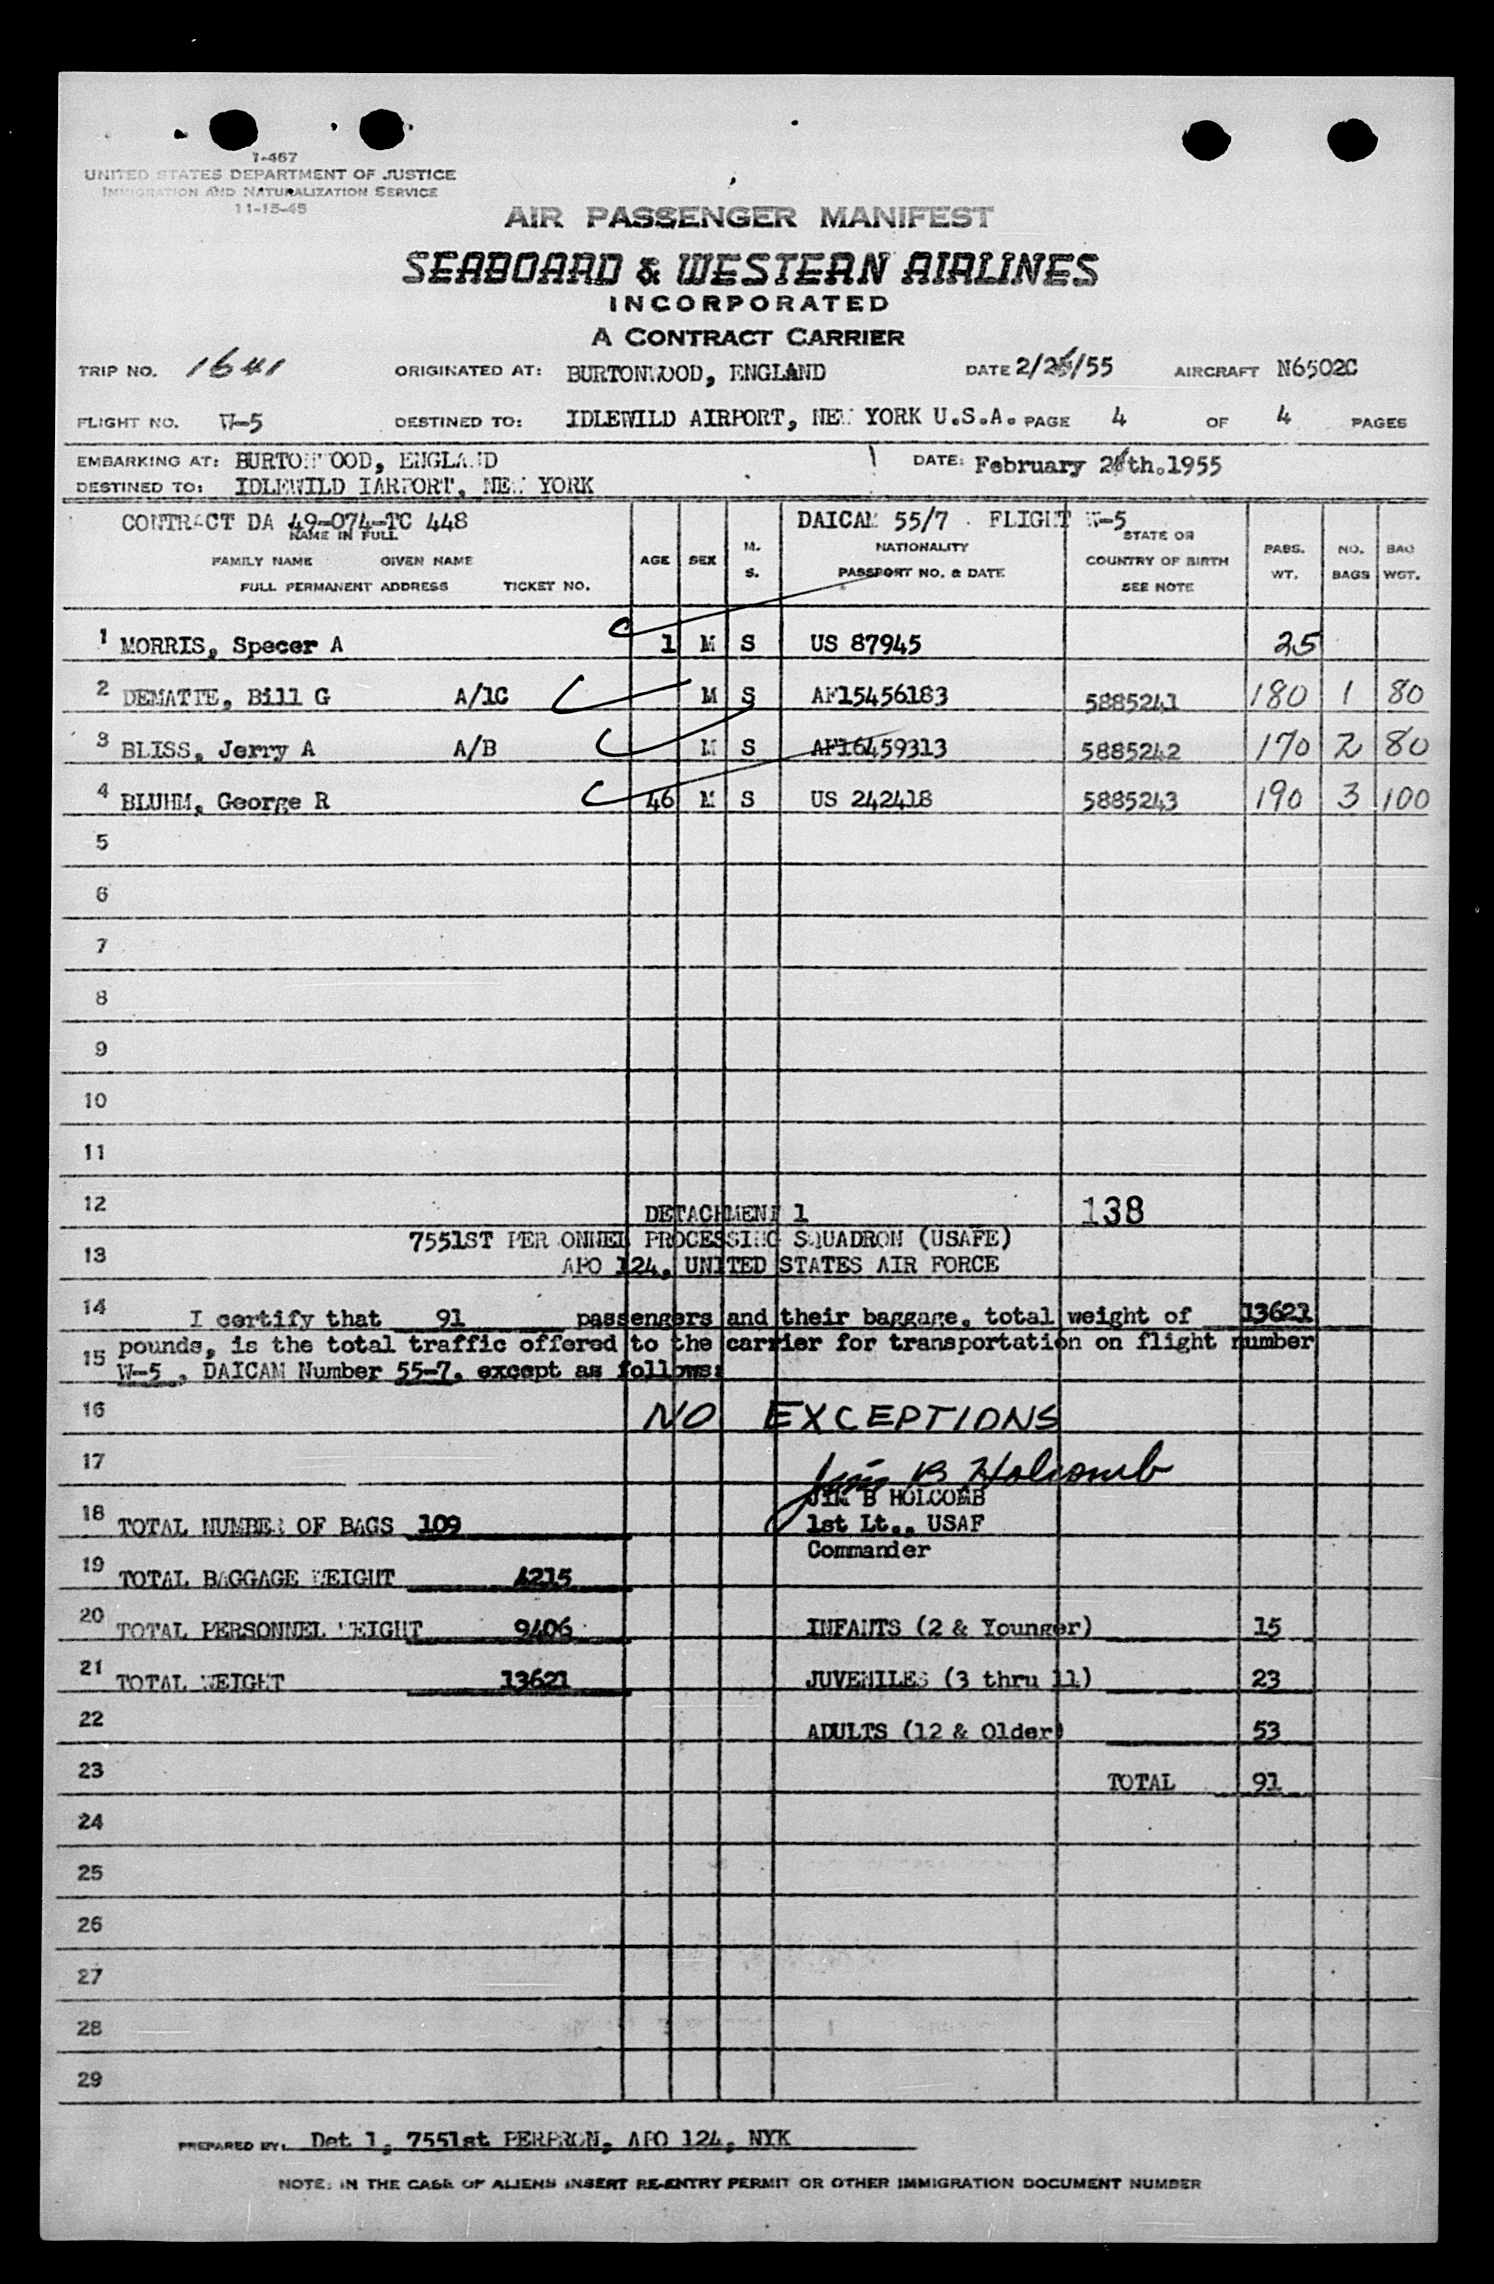 1-467
UNITED STATES DEPARTMENT OF JUSTICE
IMMIGRATION AND NATURALIZATION SERVICE
11-15-45
AIR PASSENGER MANIFEST
SEABOARD & WESTERN AIRLINES
INCORPORATED
A CONTRACT CARRIER
TRIP NO. 1641 ORIGINATED AT: BURTONWOOD, ENGLAND DATE AIRCRAFT N6502C
FLIGHT NO. W-5 DESTINED TO: IDLEWILD AIRPORT, NEW YORK U.S.A. PAGE 4 OF 4 PAGES
EMBARKING AT: BURTONWOOD, ENGLAND DATE: February 1955
DESTINED TO: IDLEWILD IARPORT, NEW YORK
CONTRACT DA 49-074-TC 448 DAICAM 55/7 FLIGHT W-5
NAME IN FULL
FAMILY NAME GIVEN NAME
FULL PERMANENT ADDRESS TICKET NO. AGE SEX M. S. NATIONALITY PASSPORT NO. & DATE STATE OR COUNTRY OF BIRTH SEE NOTE PASS. WT. NO. BAGS BAG WGT.
1 MORRIS, Specer A 1 M S US 87945 25
2 DEMATTE, Bill G A/1C M S AF15456183 5885241 180 1 80
3 BLISS, Jerry A A/B M S AF16459313 5885242 170 2 80
4 BLUHM, George R 46 M S US 242418 5885243 190 3 100
5
6
7
8
9
10
11
12 DETACHMENT 1 138
13 7551ST PER ONNEL PROCESSING SQUADRON (USAFE)
APO 124, UNITED STATES AIR FORCE
14 I certify that 91 passengers and their baggage, total weight of 13621
15 pounds, is the total traffic offered to the carrier for transportation on flight number
W-5, DAICAM Number 55-7, except as follows:
16 NO EXCEPTIONS
17 Jim B Holcomb
JIM B HOLCOMB
18 TOTAL NUMBER OF BAGS 109 1st Lt., USAF
Commander
19 TOTAL BAGGAGE WEIGHT 4215
20 TOTAL PERSONNEL WEIGHT 9406 INFANTS (2 & Younger) 15
21 TOTAL WEIGHT 13621 JUVENILES (3 thru 11) 23
22 ADULTS (12 & Older) 53
23 TOTAL 91
24
25
26
27
28
29
PREPARED BY: Det 1, 7551st PERPRON, APO 124, NYK
NOTE: IN THE CASE OF ALIENS INSERT RE-ENTRY PERMIT OR OTHER IMMIGRATION DOCUMENT NUMBER